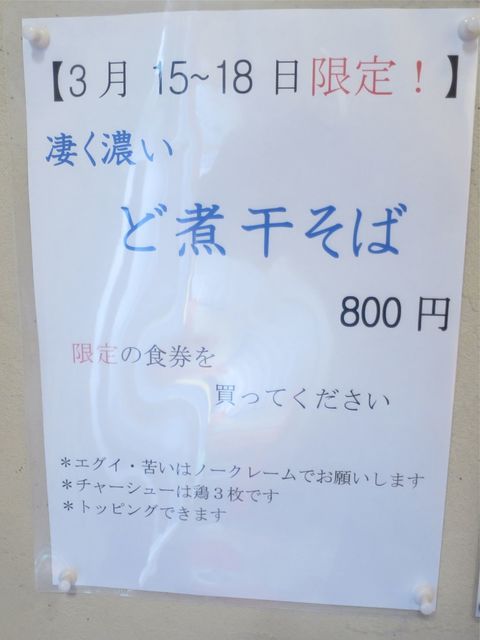 【3月 15~18 日限定！】
凄く濃い
ど煮干そば
800 円
限定の食券を
買ってください
＊エグイ・苦いはノークレームでお願いします
＊チャーシューは鶏３枚です
＊トッピングできます